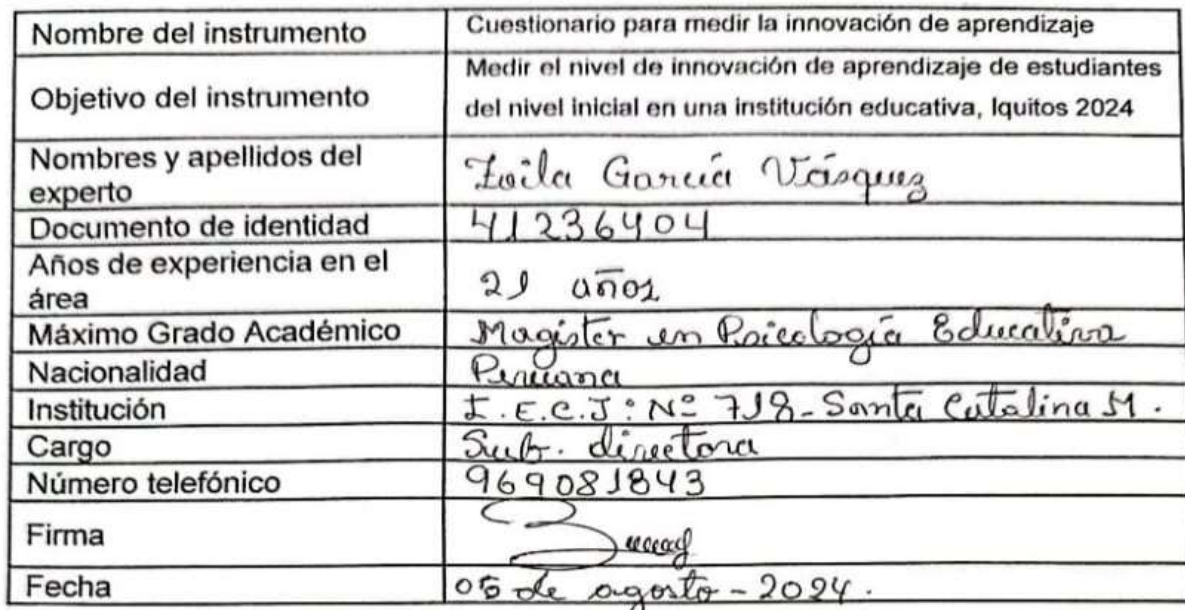 Nombre del instrumento
Cuestionario para medir la innovación de aprendizaje
Objetivo del instrumento
Medir el nivel de innovación de aprendizaje de estudiantes
del nivel inicial en una institución educativa, Iquitos 2024
Nombres y apellidos del
experto
Zoila García Vásquez
Documento de identidad
41236404
Años de experiencia en el
área
21 años
Máximo Grado Académico
Magister en Psicología Educativa
Nacionalidad
Peruana
Institución
I.E.C.J: Nº 718-Santa Catalina M.
Cargo
Sub. directora
Número telefónico
969081843
Firma
Fecha
05 de agosto - 2024.